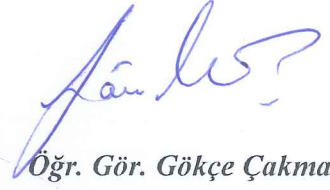 Öğr. Gör. Gökçe Çakma